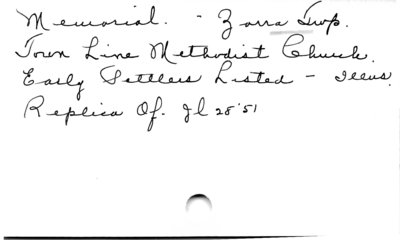 Memorial. - Zorra Twp.
Town Line Methodist Church.
Early Settlers Listed - Illus.
Replica Of. Jl 28'51